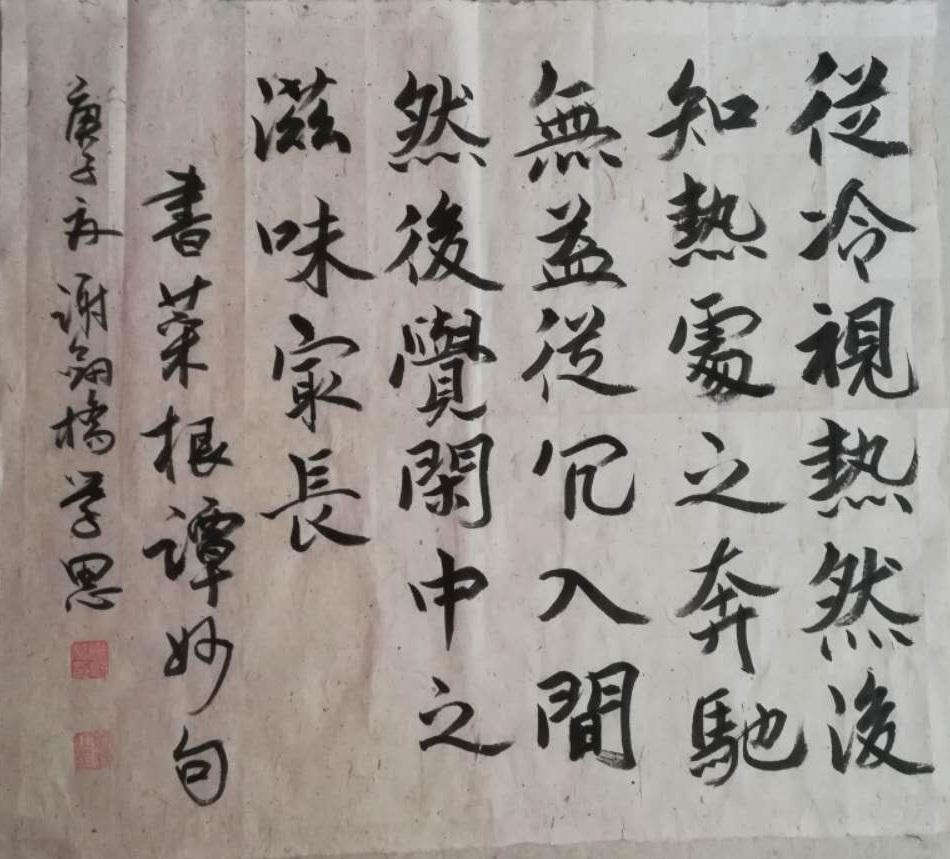 從冷視熱然後
知熱處之奔馳
無益從冗入間
然後覺閑中之
滋味最長
書菜根譚妙句
庚子 谢 橋学思